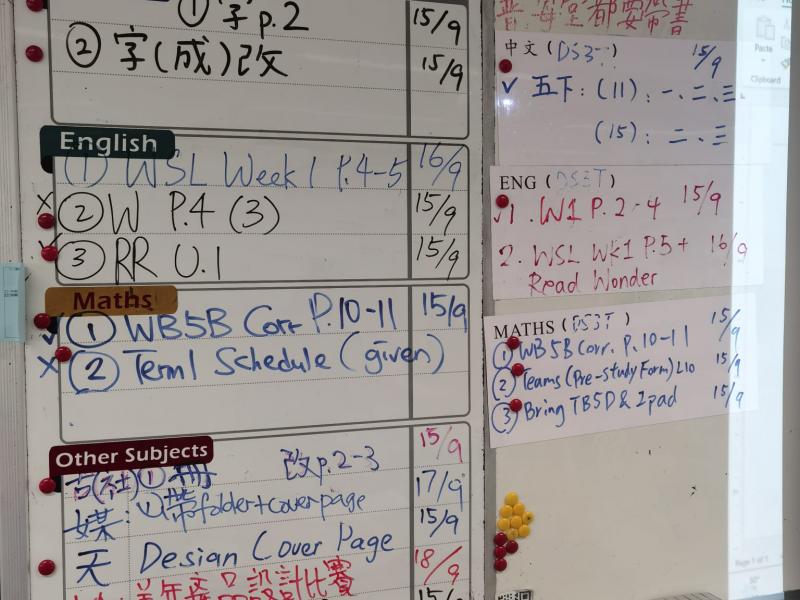 ① 字 p.2 15/9
② 字(成)改 15/9
English
(1) WSL Week 1 P.4-5 16/9
② W P.4 (3) 15/9
③ RR U.1 15/9
Maths
① WB5B Corr P.10-11 15/9
② Term1 Schedule (given)
Other Subjects
改p.2-3 15/9
帶folder+cover page 17/9
天 Design Cover Page 15/9
設計比賽 18/9
中文 (DS3 15/9
五下:(11):一、二、三
(15):二、三
ENG (DS3T)
1. W1 P.2-4 15/9
2. WSL WK1 P.5+ 16/9
Read Wonder
MATHS (DS3T) 15/9
① WB5B Corr. P.10-11
② Teams (Pre-study Form) L10 15/9
③ Bring TB5D & Ipad 15/9
Paste
Clipboard
Page 1 of 1